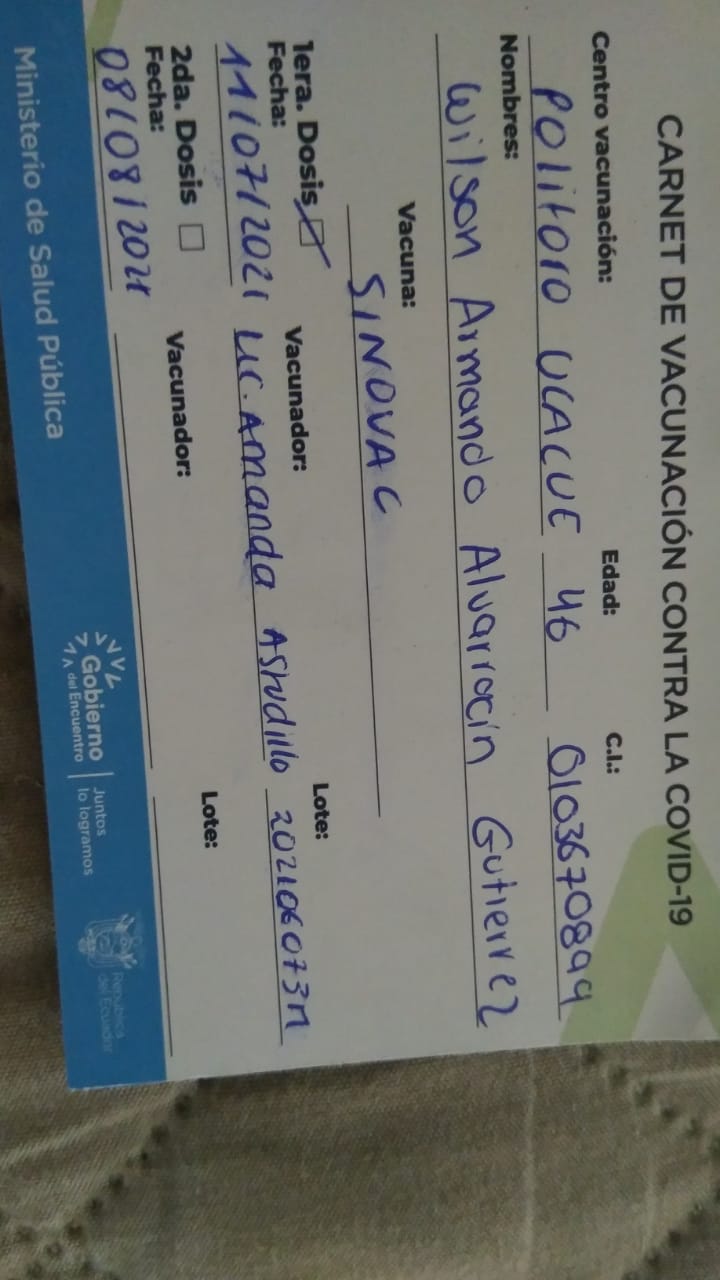 CARNET DE VACUNACIÓN CONTRA LA COVID-19
Centro vacunación: Edad: C.I.:
POlitorio UCACUE 46 0103670899
Nombres:
Wilson Armando Alvarracín Gutierrez
Vacuna:
SINOVAC
1era. Dosis
Fecha: Vacunador: Lote:
11/07/2021 Lic. Amanda Astudillo 202106073M
2da. Dosis
Fecha: Vacunador: Lote:
08/08/2021
Ministerio de Salud Pública
Gobierno
del Encuentro
Juntos
lo logramos
República
del Ecuador